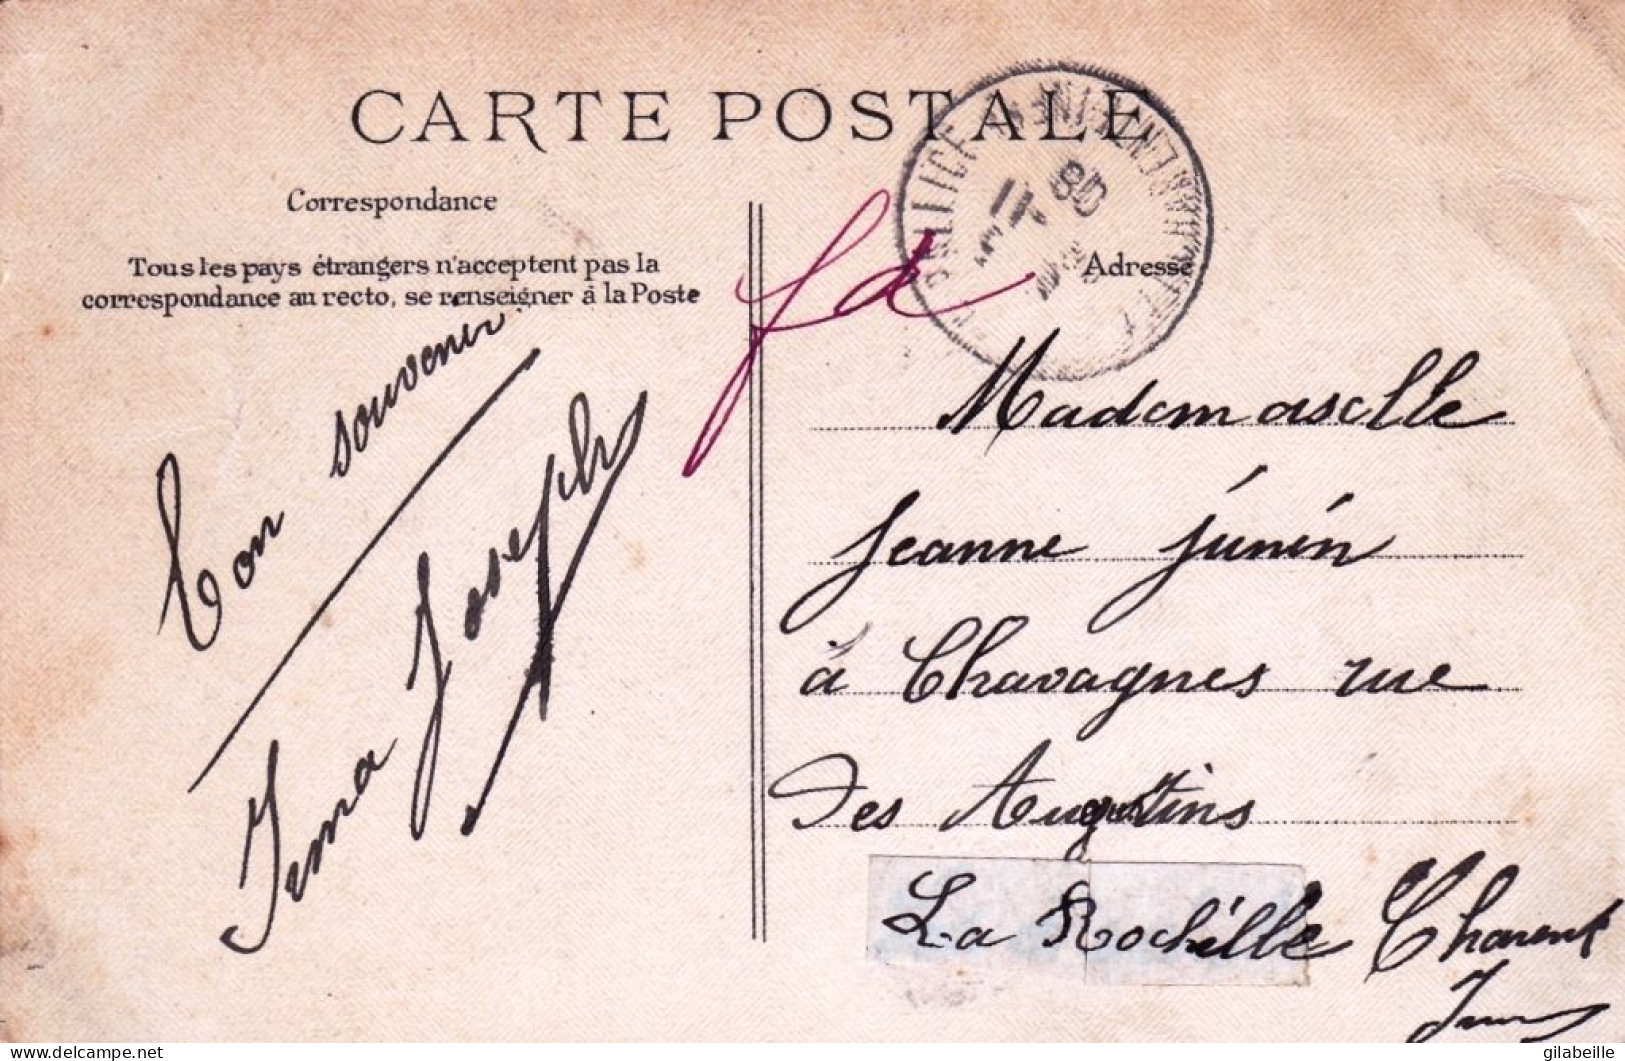 CARTE POSTALE
Correspondance
Tous les pays étrangers n'acceptent pas la
correspondance au recto, se renseigner à la Poste
Adresse
Bon souvenir
Irma Joseph
Mademaselle
Jeanne Junin
à Chavagnes rue
des Augustins
La Rochélle Charent
Infer
delcampe.net
gilabeille